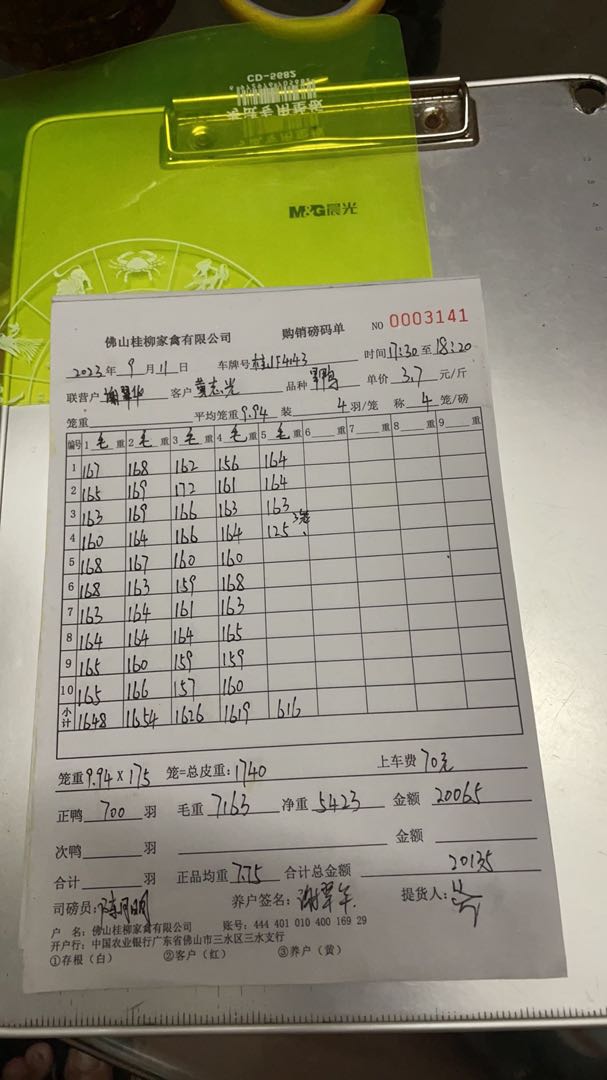 CD-5682
M&G晨光
佛山桂柳家禽有限公司 购销磅码单 NO 0003141
2023年 9月 11日 车牌号 桂JF4143 时间 17:30 至 18:20
联营户 谢翠华 客户 黄志光 品种 鸭 单价 3.7 元/斤
笼重 平均笼重 9.94 装 4 羽/笼 称 4 笼/磅
编号 1 毛 重 2 毛 重 3 毛 重 4 毛 重 5 毛 重 6 重 7 重 8 重 9 重
1 167 168 162 156 164
2 165 169 172 161 164
3 163 169 166 163 163
4 160 164 166 164 125 3笼
5 168 167 160 160
6 168 163 159 168
7 163 164 161 163
8 164 164 164 165
9 165 160 159 159
10 165 166 157 160
小计 1648 1654 1626 1619 616
笼重 9.94 × 175 笼=总皮重: 1740 上车费 70元
正鸭 700 羽 毛重 7163 净重 5423 金额 20065
次鸭 羽 金额
合计 羽 正品均重 7.75 合计总金额 20135
司磅员: 养户签名: 谢翠华 提货人:
户 名: 佛山桂柳家禽有限公司 账号: 444 401 010 400 169 29
开户行: 中国农业银行广东省佛山市三水区三水支行
①存根（白） ②客户（红） ③养户（黄）